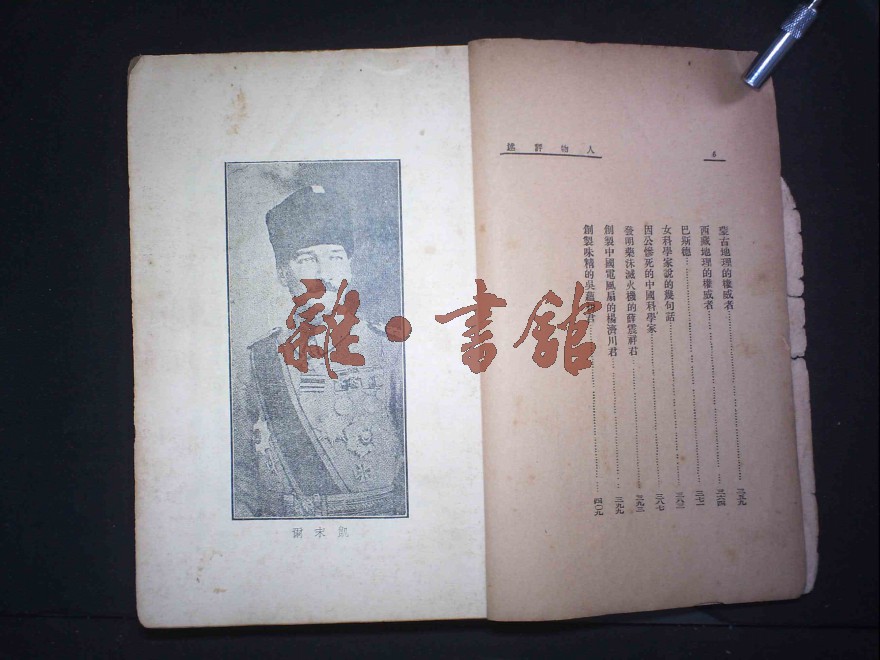 6
人物評述
蒙古地理的權威者……三五九
西藏地理的權威者……三六四
巴斯德……三七一
女科學家說的幾句話……三八三
因公慘死的中國科學家……三八七
發明藥沫滅火機的薛震祥君……三九三
創製中國電風扇的楊濟川君……三九九
創製味精的吳蘊初君……四〇九
凱末爾
雜·書館